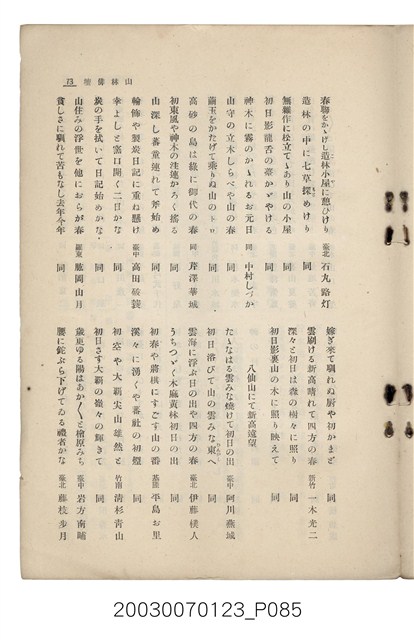 73　山林俳壇
春聯をかゝげし造林小屋に憩ひけり　臺北　石丸路灯
造林の中に七草探めけり　同
無雜作に松立てゝあり山の小屋　同
初日影龍舌の葉かゞやける　同
神木に霧のかゝれるお元日　同　中村しづか
山守の立木しらべや山の春　同
繭玉をかたげて乘りぬ山のトロ　同
高砂の島は綠に御代の春　同　芹澤華城
初東風や神木の注連かろく搖る　同
山深し蕃童連れて斧始め　同
輪飾や製炭日記に重ね懸け　臺中　高田破簑
幸よしと窯口開く二日かな　同
炭の手を拭いて日記始めかな　同
山住みの浮世を他におらが春　羅東　脇岡山月
貧しさに馴れて苦もなし去年今年　同
嫁ぎ來て馴れぬ厨や初かまど　同
雲刷ける新高晴れて四方の春　新竹　一木光二
深々と初日は森の樹々に照り　同
初日影裏山の木に照り映えて　同
八仙山にて新高遠望
たゝなはる雲みな燒けて初日の出　臺中　阿川燕城
初日浴びて山の雲みな東へ　同
雲海に浮ぶ日の出や四方の春　臺北　伊藤樸人
うちつゞく木麻黃林初日の出　同
初春や將棋にすごす山の番　基隆　平島お里
深々に湧くや蕃社の初煙　同
初空や大霸尖山雄然と　竹南　清杉青山
初日さす大霸の嶺々の輝きて　同
歲更ゆる陽はあか〱と檜原みち　臺中　岩方南哺
腰に鉈ぶら下げてゐる禮者かな　臺北　藤枝步月
20030070123_P085